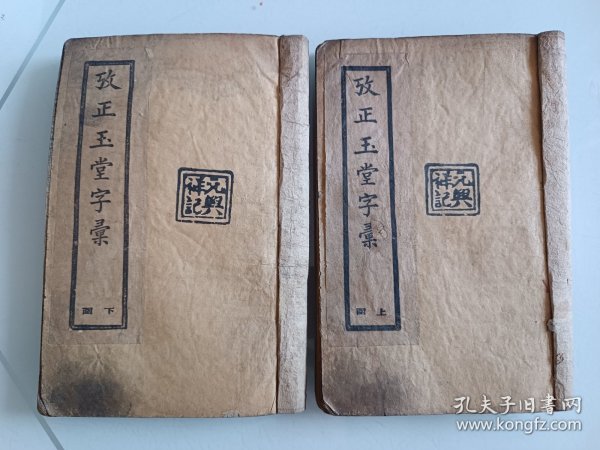 攷正玉堂字彙
下
元興
祥記
攷正玉堂字彙
上
元興
祥記
孔夫子旧书网
www.kongfz.com